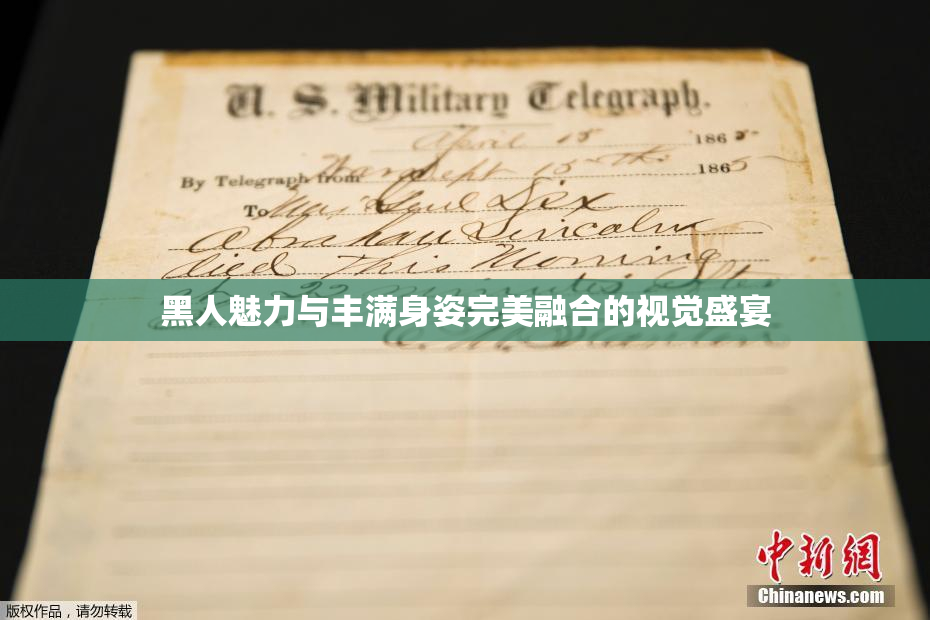 U. S. Military Telegraph.
April 15 1865
By Telegraph from War Dept 15th 1865
To Maj Genl Dix
Abraham Lincoln
died This Morning
at 22 minutes after
黑人魅力与丰满身姿完美融合的视觉盛宴
E. M. Stanton
中新网
Chinanews.com
版权作品，请勿转载